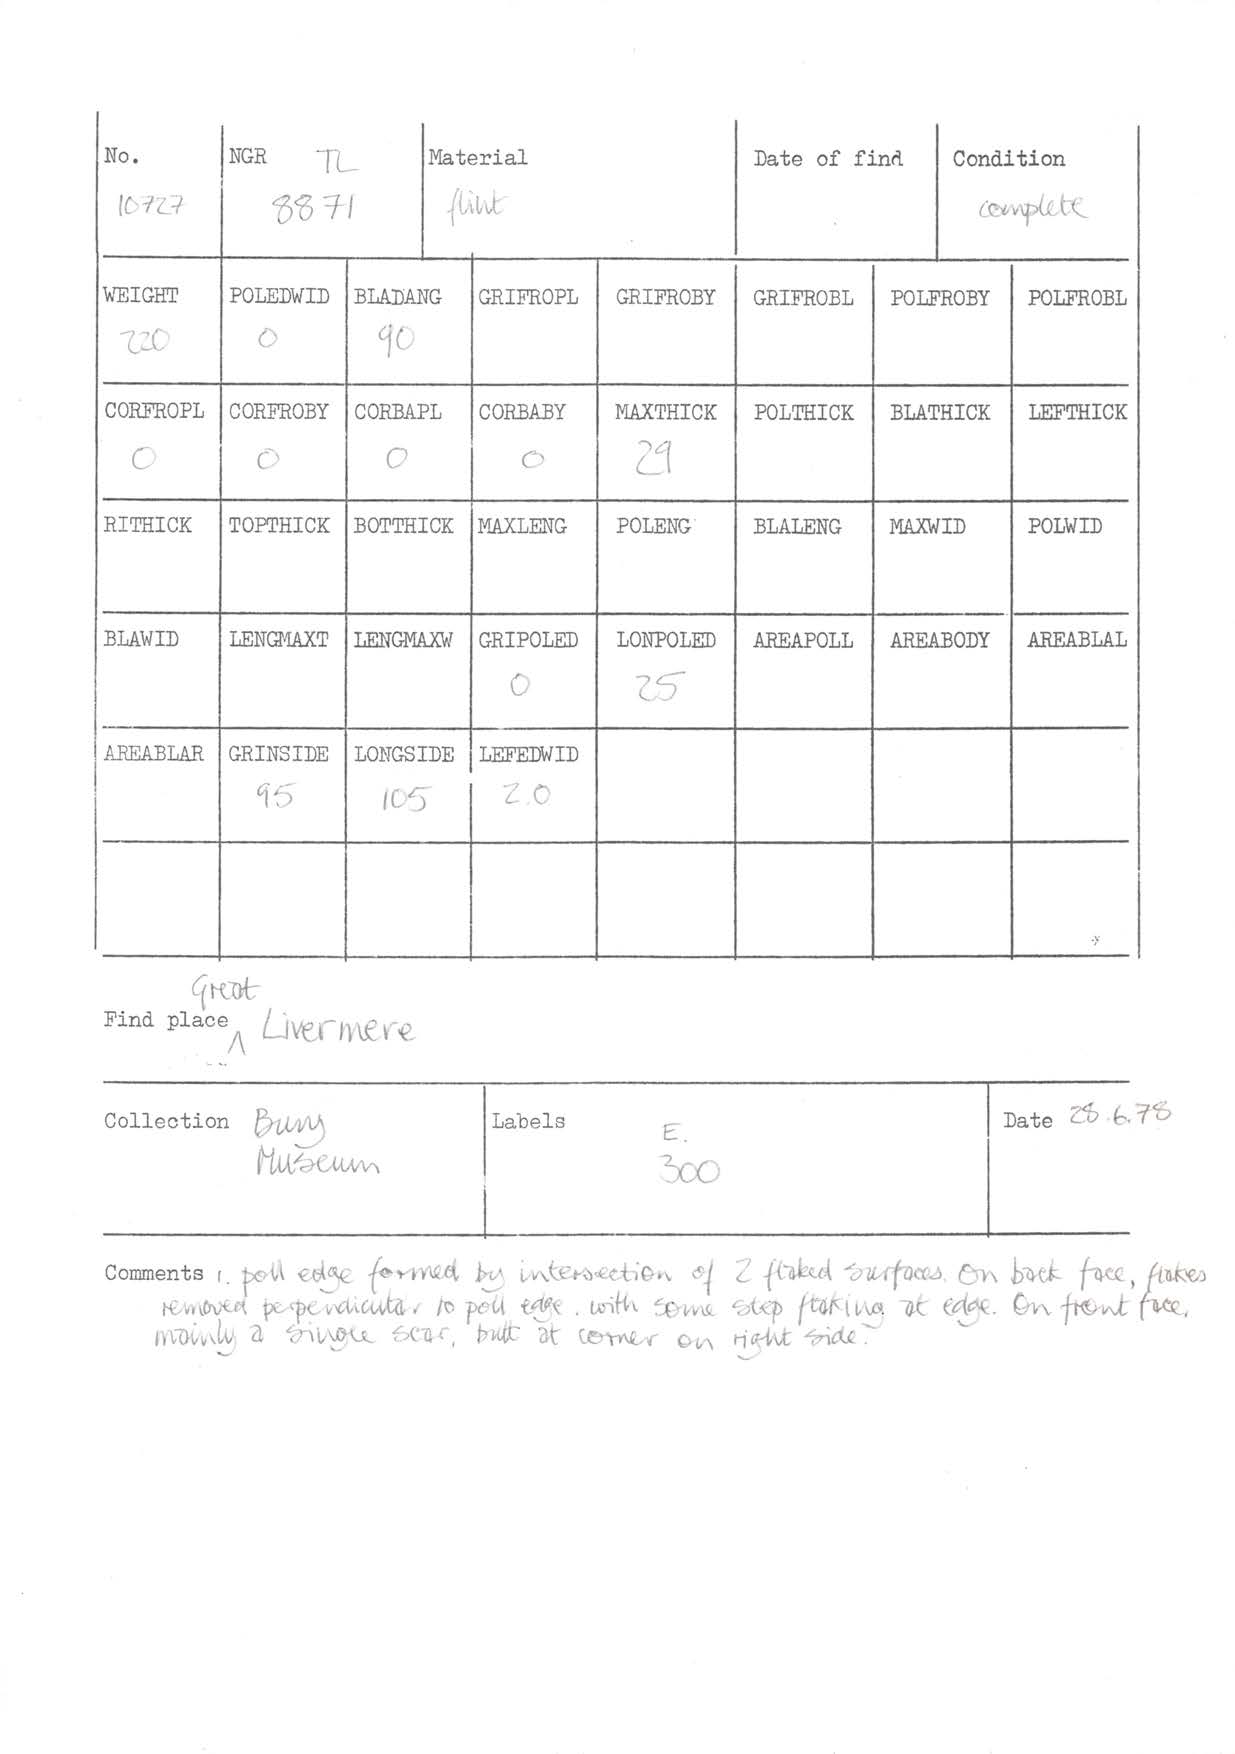 No. NGR TL Material Date of find Condition
10727 8871 flint complete
WEIGHT POLEDWID BLADANG GRIFROPL GRIFROBY GRIFROBL POLFROBY POLFROBL
220 0 90
CORFROPL CORFROBY CORBAPL CORBABY MAXTHICK POLTHICK BLATHICK LEFTHICK
0 0 0 0 29
RITHICK TOPTHICK BOTTHICK MAXLENG POLENG BLALENG MAXWID POLWID
BLAWID LENGMAXT LENGMAXW GRIPOLED LONPOLED AREAPOLL AREABODY AREABLAL
0 25
AREABLAR GRINSIDE LONGSIDE LEFEDWID
95 105 2.0
Great
Find place ^ Livermere
Collection Bury Labels E. Date 28.6.78
Museum 300
Comments 1. poll edge formed by intersection of 2 flaked surfaces. On back face, flakes
removed perpendicular to poll edge. with some step flaking at edge. On front face,
mainly a single scar, butt at corner on right side.